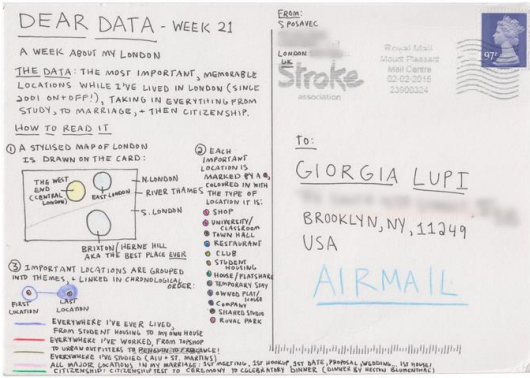 DEAR DATA - WEEK 21
A WEEK ABOUT MY LONDON
THE DATA: THE MOST IMPORTANT, MEMORABLE
LOCATIONS WHILE I'VE LIVED IN LONDON (SINCE
2001 ON+OFF!), TAKING IN EVERYTHING FROM
STUDY, TO MARRIAGE, + THEN CITIZENSHIP.
HOW TO READ IT
① A STYLISED MAP OF LONDON
IS DRAWN ON THE CARD:
THE WEST
END
(CENTRAL
LONDON)
EAST LONDON
N. LONDON
RIVER THAMES
S. LONDON
BRIXTON/HERNE HILL
AKA THE BEST PLACE EVER
② EACH
IMPORTANT
LOCATION IS
MARKED BY A
COLOURED IN WITH
THE TYPE OF
LOCATION IT IS:
SHOP
UNIVERSITY/
CLASSROOM
TOWN HALL
RESTAURANT
CLUB
STUDENT
HOUSING
HOUSE/FLATSHARE
TEMPORARY STAY
OWNED FLAT/
HOUSE
COMPANY
SHARED STUDIO
ROYAL PARK
③ IMPORTANT LOCATIONS ARE GROUPED
INTO THEMES, + LINKED IN CHRONOLOGICAL
ORDER:
FIRST
LOCATION
LAST
LOCATION
EVERYWHERE I'VE EVER LIVED,
FROM STUDENT HOUSING TO MY OWN HOUSE
EVERYWHERE I'VE WORKED, FROM TOPSHOP
TO URBAN OUTFITTERS TO FREELANCE!
EVERYWHERE I'VE STUDIED (AIU + ST. MARTINS)
ALL MAJOR LOCATIONS IN MY MARRIAGE: 1ST MEETING, 1ST HOOKUP, 1ST DATE, PROPOSAL, WEDDING, 1ST HOUSE/
CITIZENSHIP: CITIZENSHIP TEST TO CEREMONY TO CELEBRATORY DINNER (DINNER BY HESTON BLUMENTHAL)
FROM:
S POSAVEC
LONDON
UK
Stroke
association
Royal Mail
Mount Pleasant
Mail Centre
02-02-2015
23900324
97P
TO:
GIORGIA LUPI
BROOKLYN, NY, 11249
USA
AIRMAIL